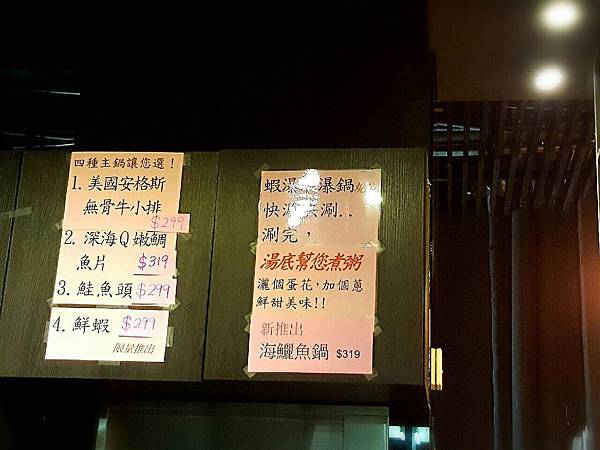 四種主鍋讓您選！
1. 美國安格斯
無骨牛小排
$299
2. 深海Q嫩鯛
魚片 $319
3. 鮭魚頭 $299
4. 鮮蝦 $299
限量推出
蝦瀑 瀑鍋
快涮 涮..
涮完，
湯底幫您煮粥
灑個蛋花，加個蔥
鮮甜美味!!
新推出
海鱺魚鍋 $319